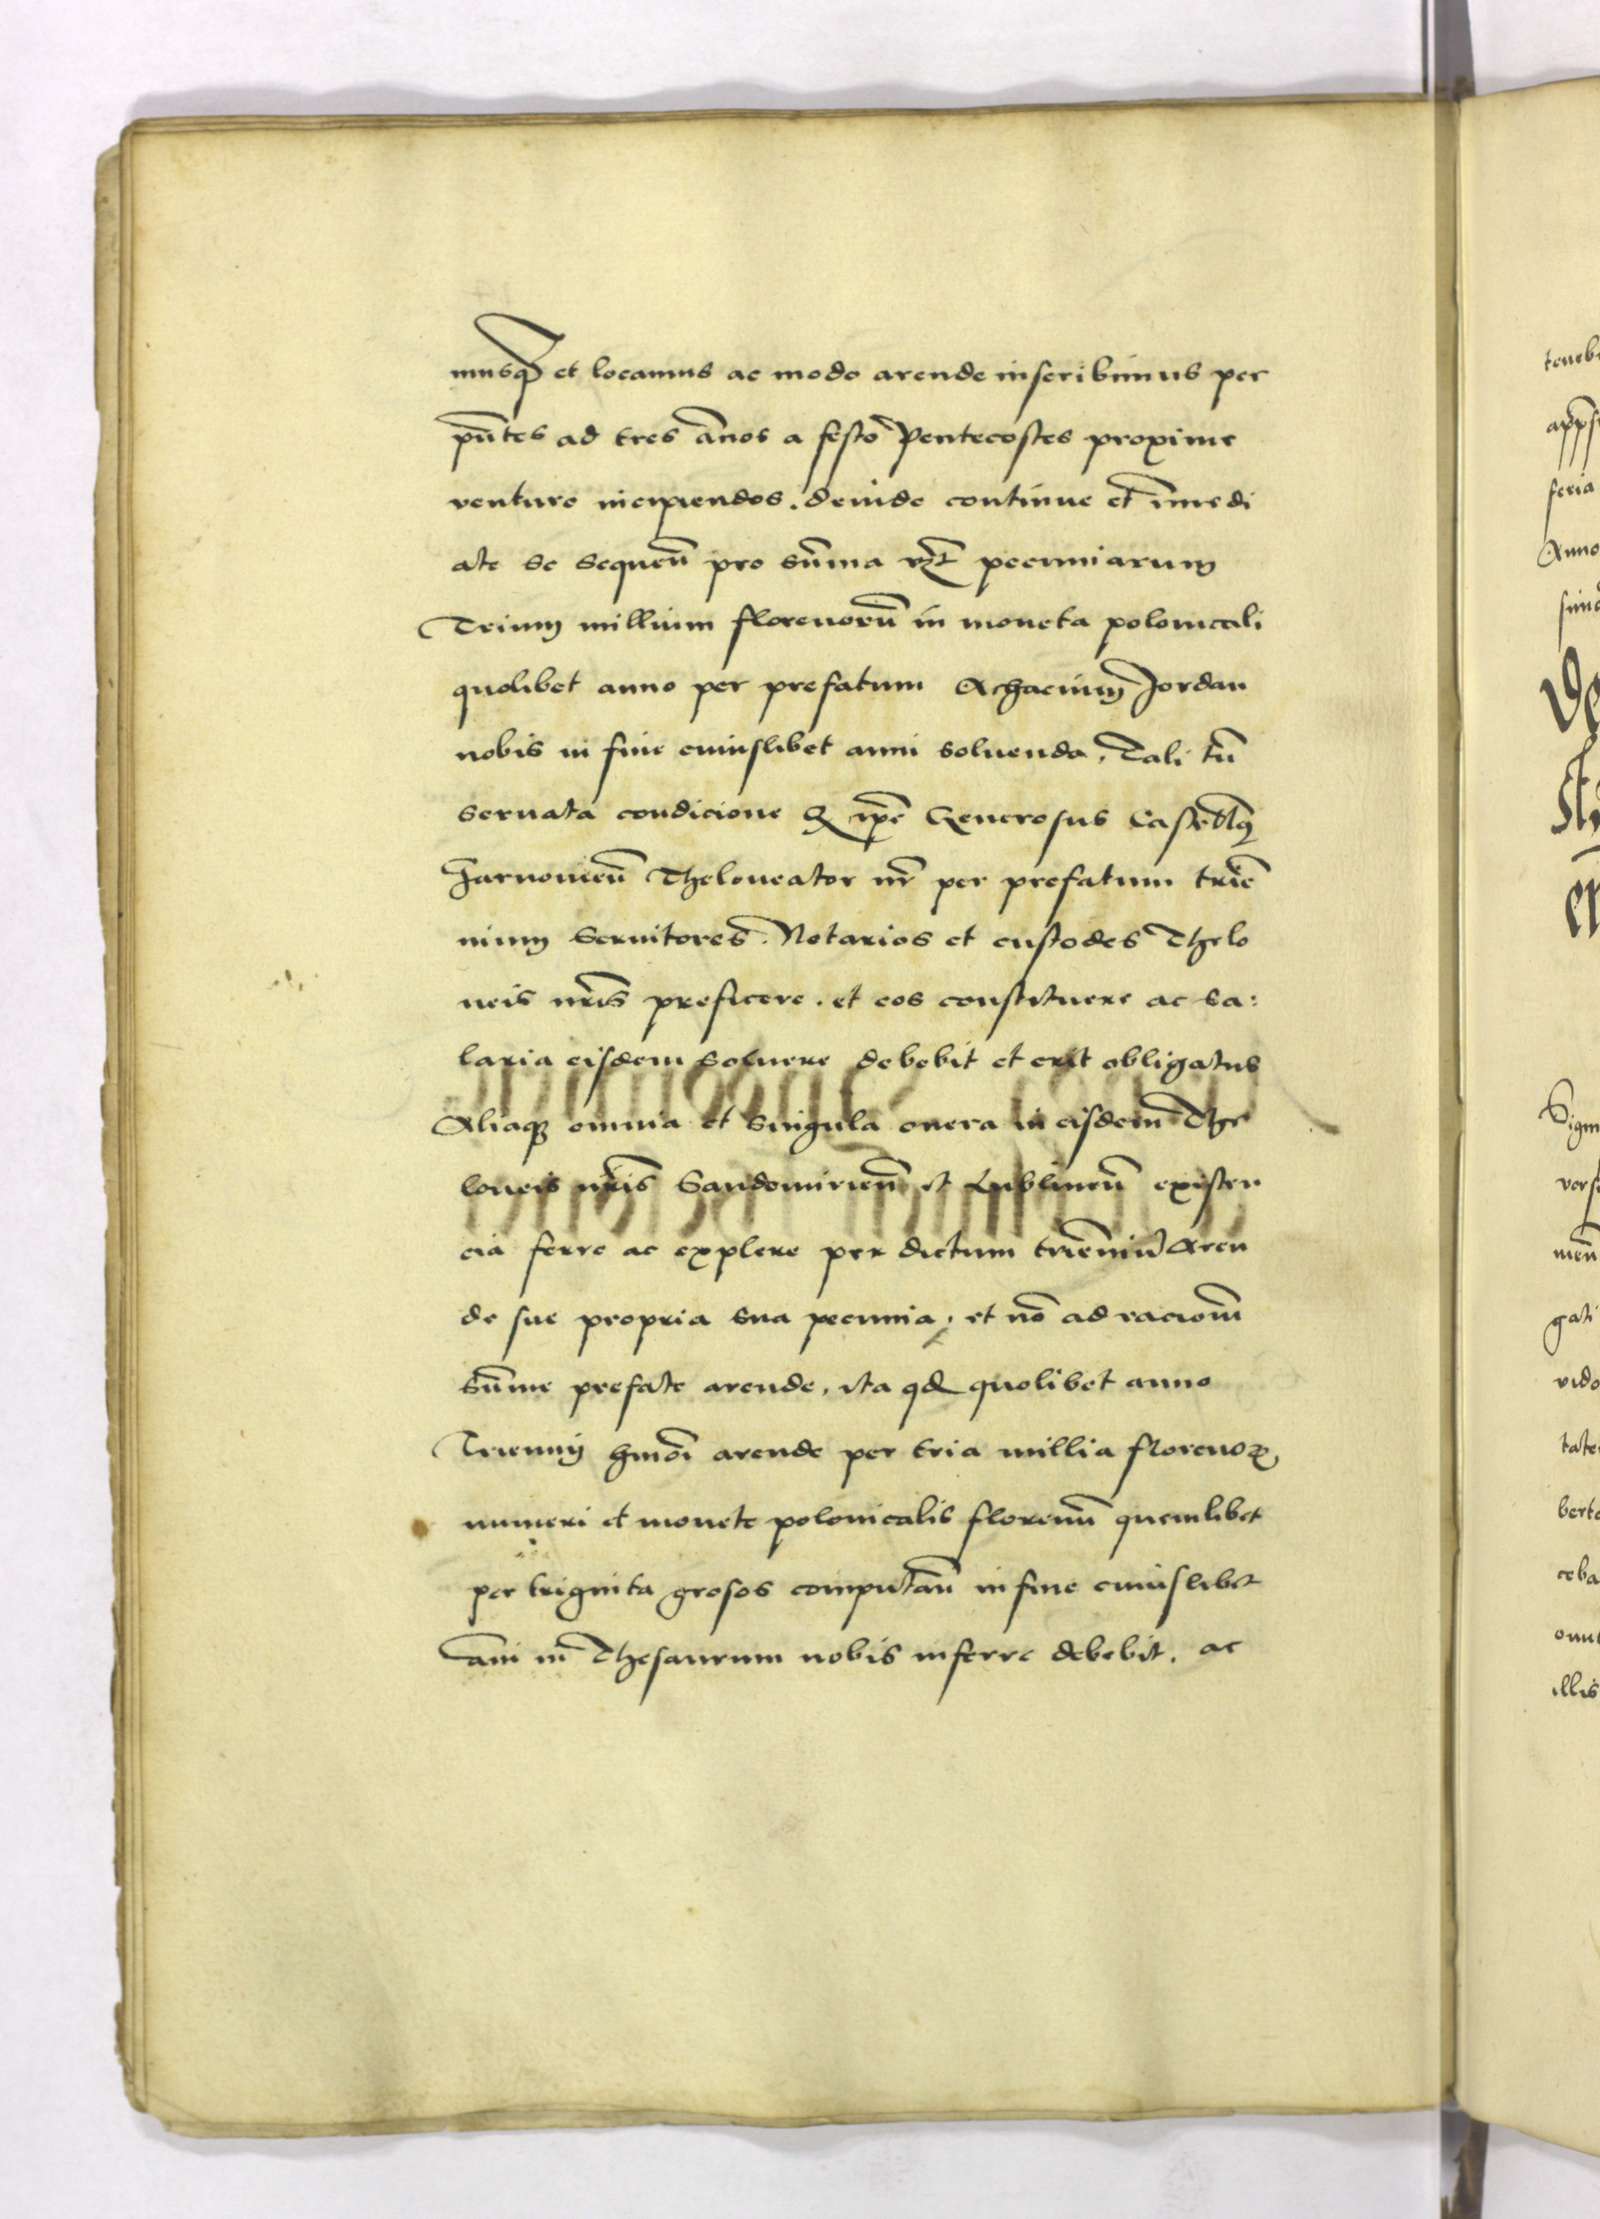 musq̃ et locamus ac modo arende inscribimus per
pñtes ad tres ãnos a festo Pentecostes proxime
venturo incipiendos. deinde continue et ĩmedi
ate se sequeñ pro sũma pecuniarum
Trium millium florenorũ in moneta polonicali
quolibet anno per prefatum Achacium Jordan
nobis in fine cuiuslibet anni soluenda. Tali tñ
seruata condicione q ip̃e Generosus Castellãꝯ
Zarnouieñ Theloneator nr̃ per prefatum triẽ
nium Seruitores. Notarios et custodes Thelo
neis nr̃is preficere. et eos constituere ac sa:
laria eisdem soluere debebit et erit obligatus
Aliaqꝫ omnia et singula onera in eisdem The
loneis nr̃is Sandomirieñ et Lublineñ existen
cia ferre ac explere per dictum triẽniũ Aren
de sue propria sua pecunia. et nõ ad racionẽ
sũme prefate arende. ita qd quolibet anno
Triennij hmõi arende per tria millia florenoꝝ
numeri et monete polonicalis florenũ quemlibet
per triginta grosos computañ in fine cuiuslibet
ãni in Thesaurum nobis inferre debebit. ac